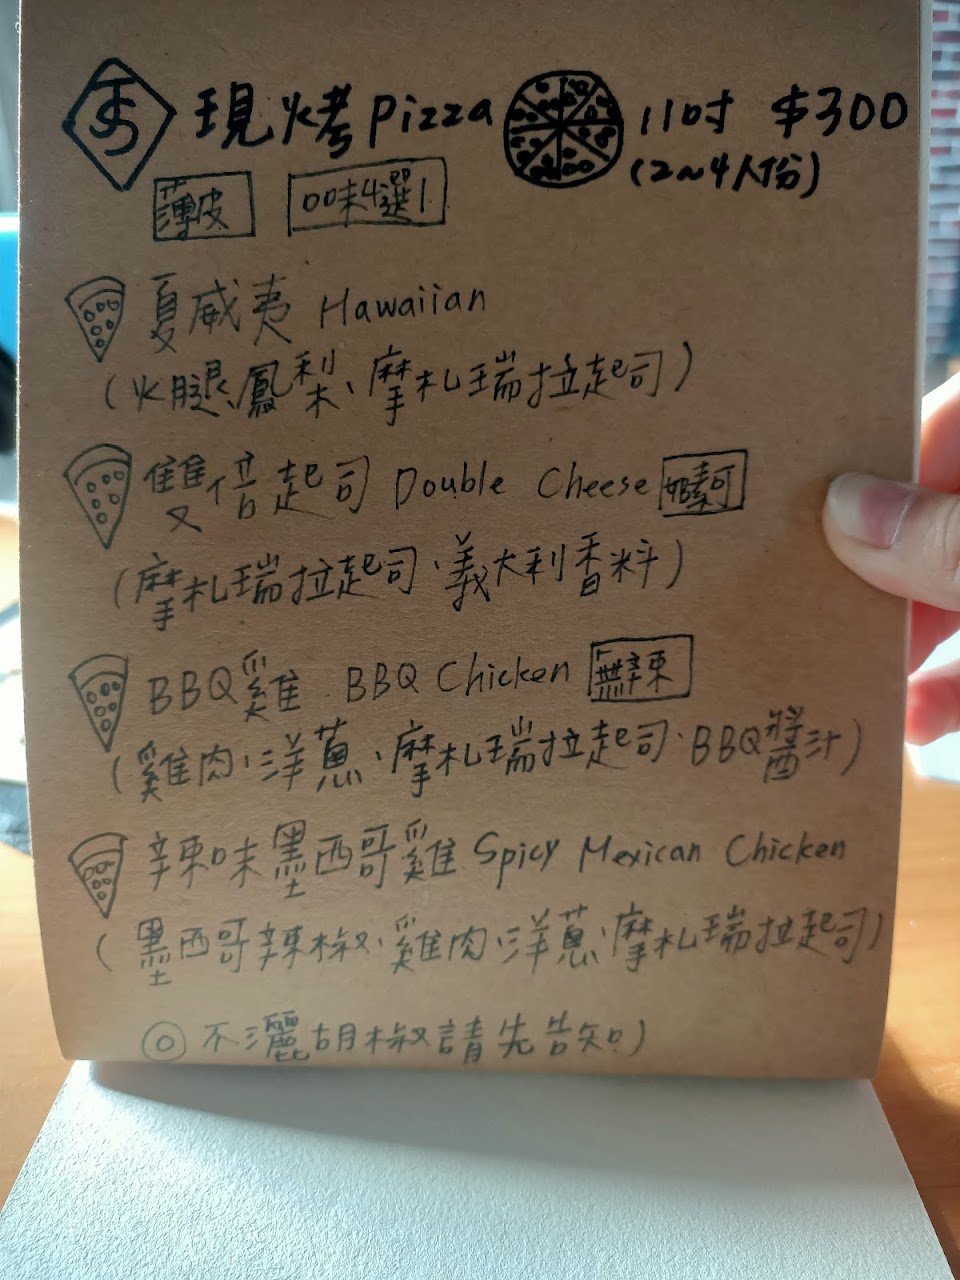 現烤Pizza 11吋 $300
(2~4人份)
薄皮 口味4選1
夏威夷 Hawaiian
(火腿、鳳梨、摩札瑞拉起司)
雙倍起司 Double Cheese 奶素可
(摩札瑞拉起司、義大利香料)
BBQ雞 BBQ Chicken 無辣
(雞肉、洋蔥、摩札瑞拉起司、BBQ醬汁)
辣味墨西哥雞 Spicy Mexican Chicken
(墨西哥辣椒、雞肉、洋蔥、摩札瑞拉起司)
◎不灑胡椒請先告知)